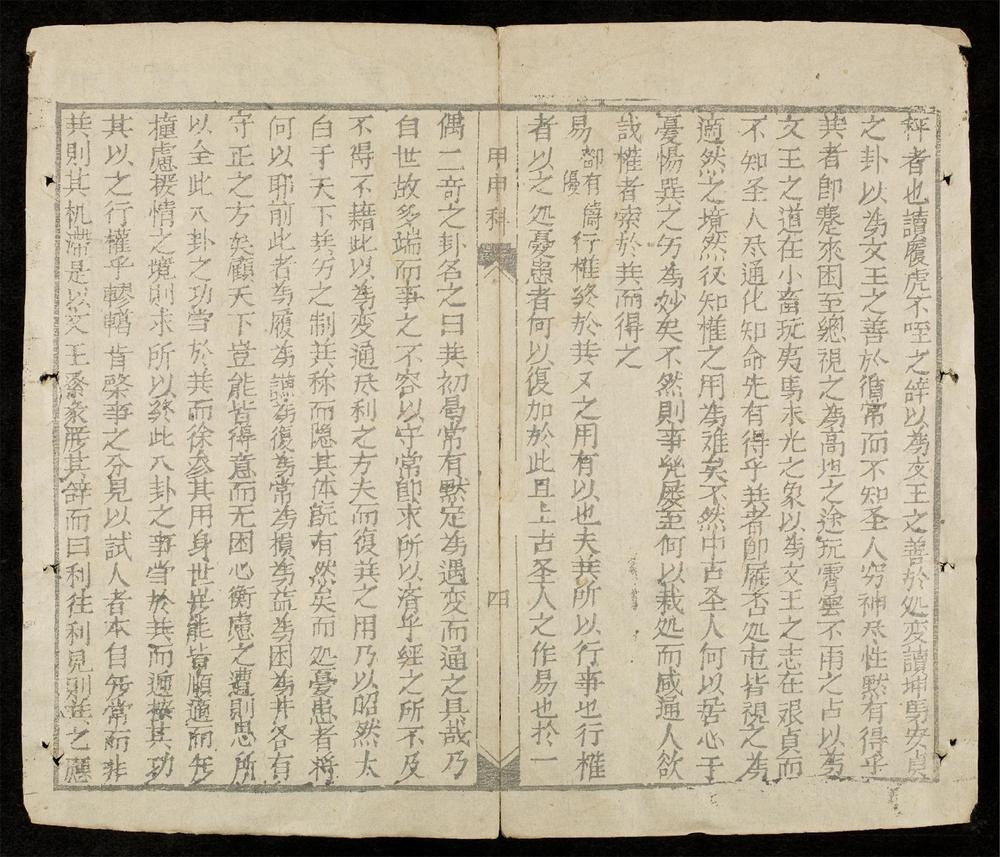 秤者也讀履虎不咥之辞以為文王之善於処変讀坤馬安貞
之卦以為文王之善於循常而不知圣人穷神尽性黙有得乎
巽者即蹇來困至總視之為高坦之途玩霄雲不雨之占以為
文王之道在小畜玩夷馬未光之象以為文王之志在艰貞而
不知圣人尽通化知命先有得乎巽者即屦否処屯皆視之為
適然之境然後知權之用為难矣不然中古圣人何以苦心于
憂惕巽之穷為妙矣不然則事発屡至何以裁処而感通人欲
哉權者索於巽而得之
易 都有優 簡行權終於巽又之用有以也夫巽所以行事也行權
者以之処憂患者何以復加於此且上古圣人之作易也於一
甲申科 四
偶二奇之卦名之曰巽初曷常有黙定為遇变而通之具哉乃
自世故多端而事之不容以守常即求所以済乎經之所不及
不得不藉此以為変通尽利之方夫而復巽之用乃以昭然太
白于天下巽穷之制巽称而隐其体既有然矣而処憂患者将
何以耶前此者為履為謙為復為常為損為益為困為井各有
守正之方矣顧天下豈能皆得意而无困心衡慮之遭則思所
以全此八卦之功当於巽而徐参其用身世岂能皆順適而无
撞慮援情之境則求所以終此八卦之事当於巽而迎擬其功
其以之行權乎轇轕肯綮事之分見以試人者本自処常而非
巽則其机滞是以文王系彖厐其辞而曰利往利見則巽之雁